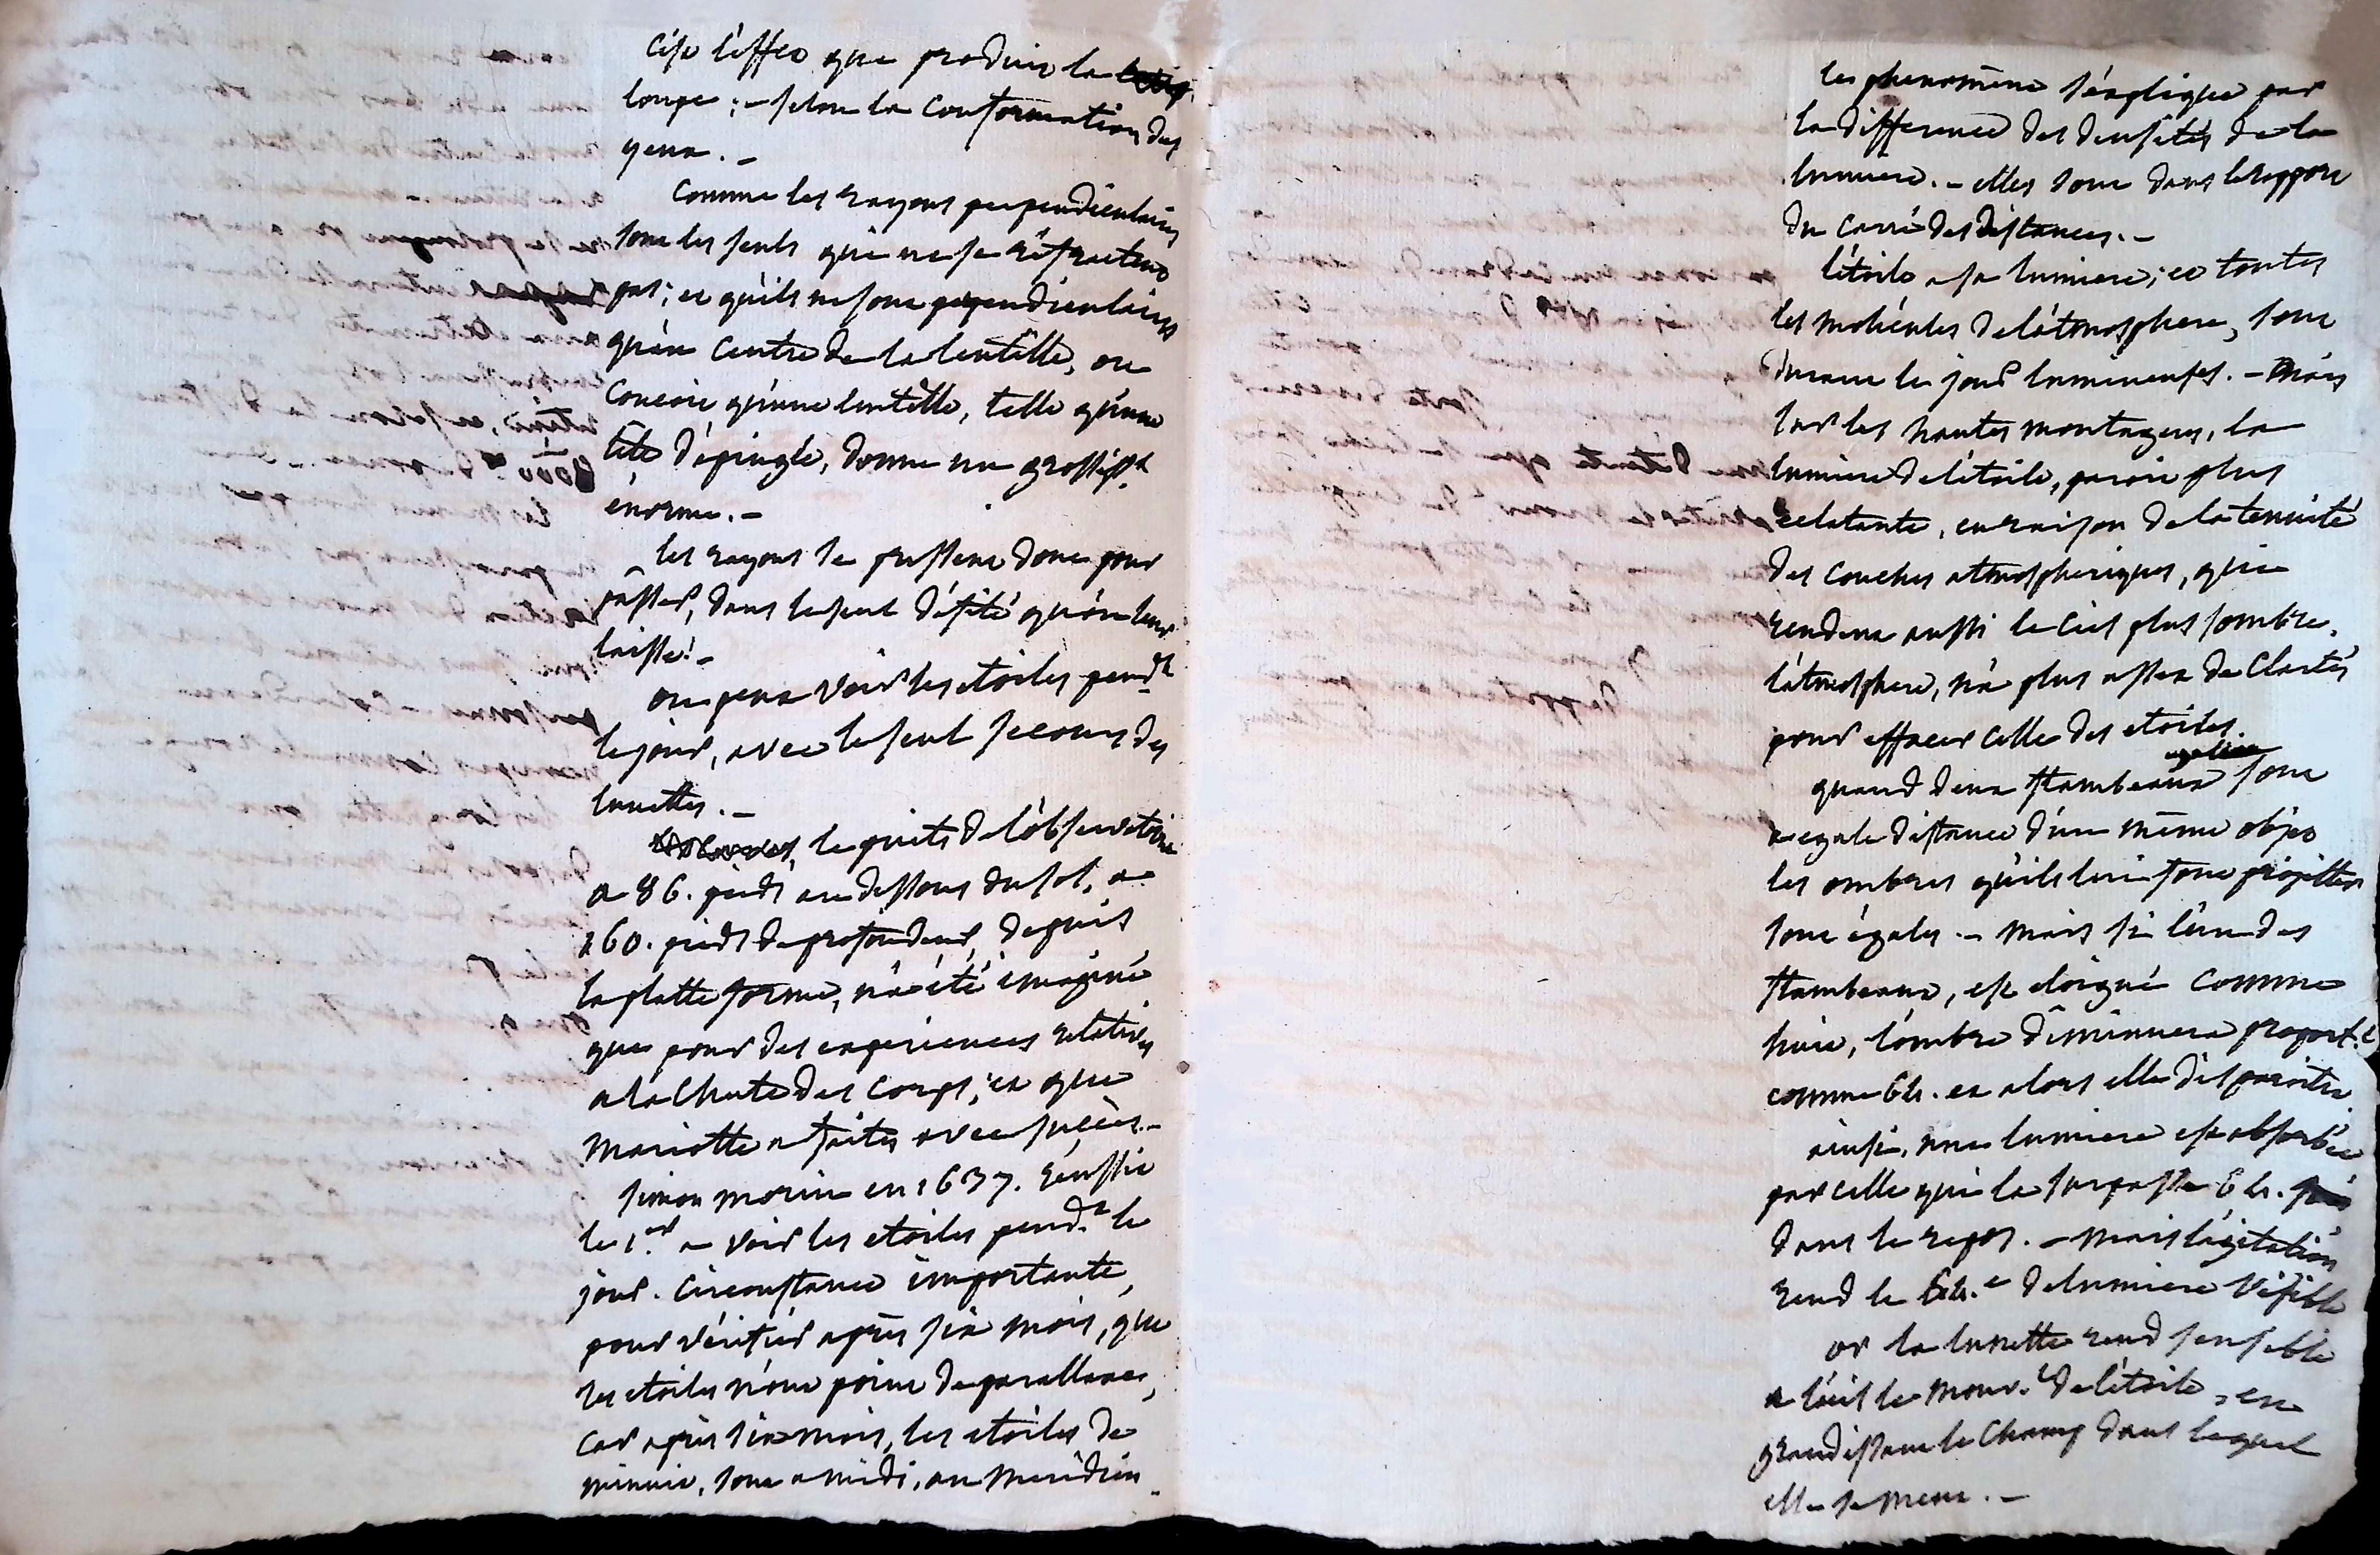 c'est l'effet que produit la
loupe ; - selon la conformation des
yeux. -
Comme les rayons perpendiculaires
sont les seuls qui ne se réfractent
pas ; et qu'ils ne sont perpendiculaires
qu'au centre de la lentille, on
conçoit qu'une lentille, telle qu'une
tête d'épingle, donne un grossisst
énorme. -
les rayons se pressent donc pour
passer, dans le seul défilé qu'on leur
laisse! -
on peut voir les etoiles pendt
le jour, avec le seul secours des
lunettes. -
le puits de l'observatoire
a 86. pieds au dessous du sol, a
160. pieds de profondeur, depuis
la platte forme, n'a été imaginé
que pour des experiences relatives
a la chute des corps ; et que
Mariotte a faites avec succès. -
Simon Morin en 1637. réussit
le 1.er a voir les etoiles pend.t le
jour. Circonstance importante,
pour vérifier après six mois, que
les etoiles n'ont point de parallaxe,
car après six mois, les etoiles de
minuit, sont a midi, au meridien.
les phenomène s'explique par
la difference des densités de la
lumiere. - elles sont dans le rapport
du carré des distances. -
l'étoile a sa lumiere ; et toutes
les molécules de l'atmosphere, sont
durant le jour lumineuses. - Mais
sur les hautes montagnes, la
lumiere de l'étoile, paroit plus
eclatante, en raison de la tenuité
des couches atmospheriques, qui
rendent aussi le ciel plus sombre.
l'atmosphere, n'a plus assez de clartés
pour effacer celle des etoiles.
quand deux flambeaux sont
a egale distance d'un même objet
les ombres qu'ils lui font projetter
sont égales. - mais si l'un des
flambeaux, est eloigné comme
huit, l'ombre diminuera proport.t
comme 64. et alors elle disparoitra.
ainsi, une lumiere est absorbée
par celle qui la surpasse 64.
dans le repos. - mais l'agitation
rend le 64.e de lumiere visible
or la lunette rend sensible
a l'œil le mouv.t de l'étoile, en
grandissant le champ dans lequel
elle se meut. -